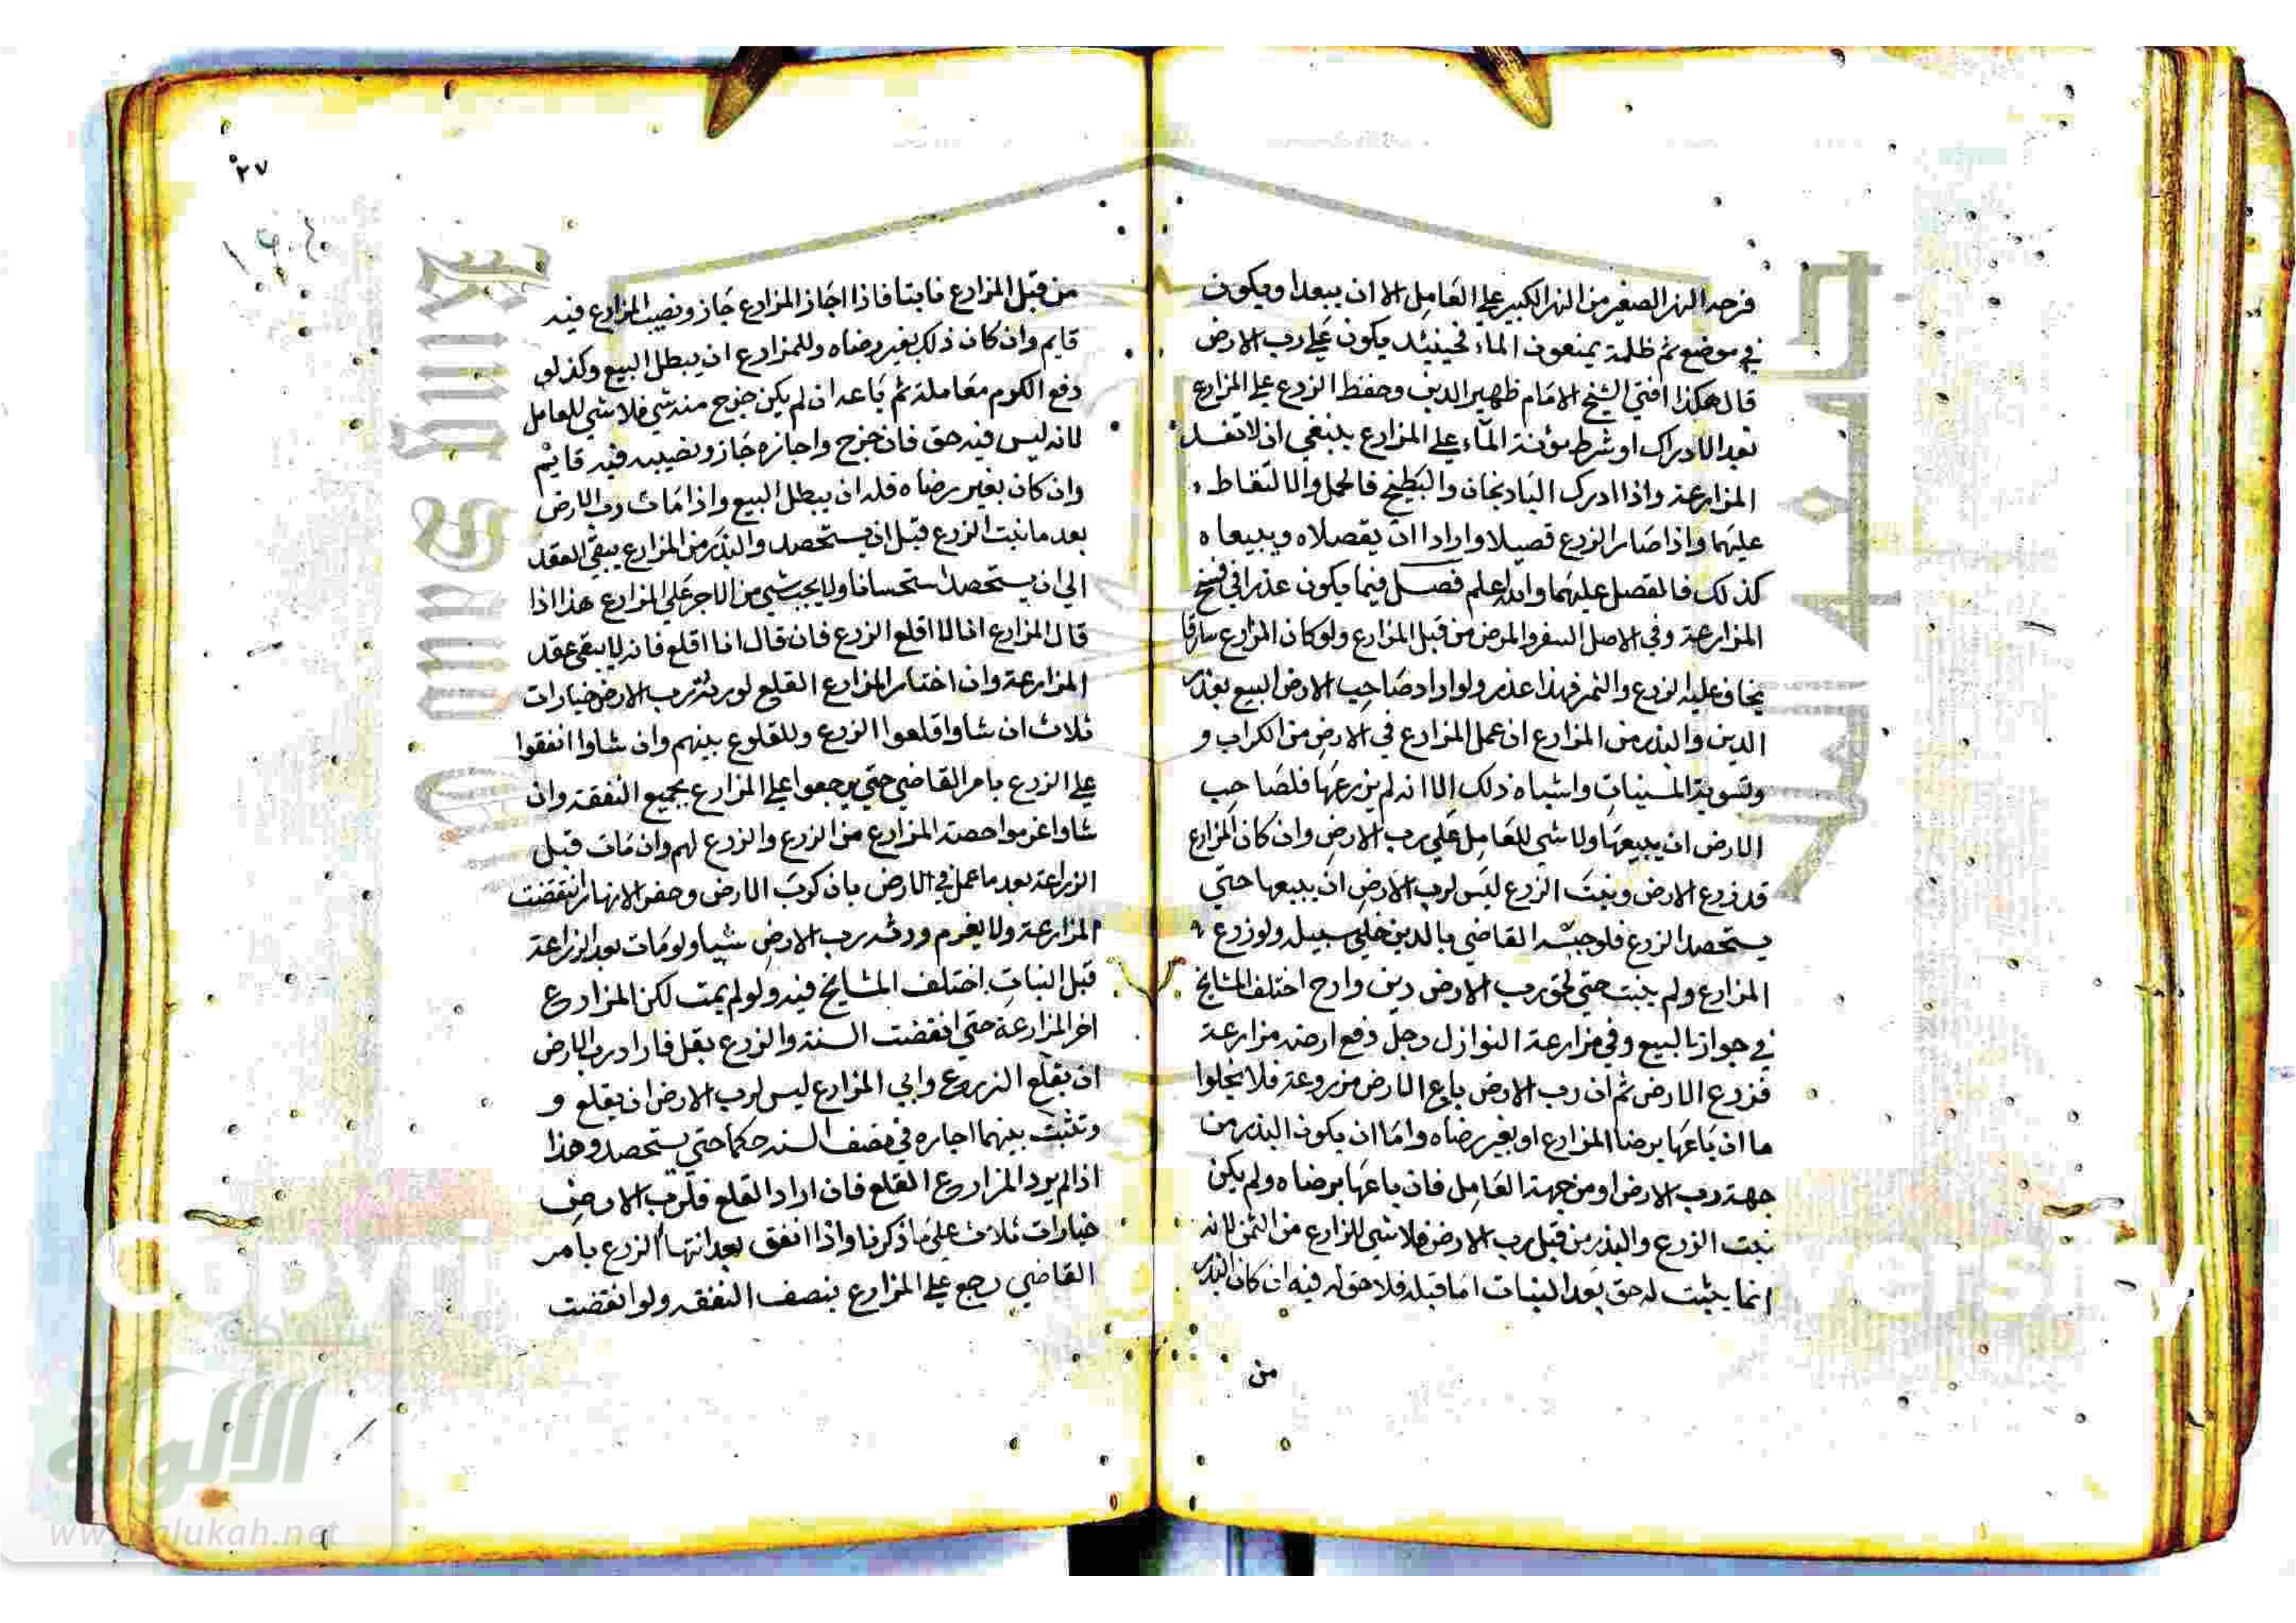 فرحه النهر الصغير من النهر الكبير علي العامل الا ان يبعدا ويكون
في موضع ثم ظلمة يمنعون الماء فحينئذ يكون علي رب الارض
قال هكذا افتي الشيخ الامام ظهير الدين وحفظ الزرع علي المزارع
بعد الادراك او شرط مؤنة الماء علي المزارع ينبغي ان لا تفسد
المزارعة واذا ادرك الباذنجان والبطيخ فالحمل والالتقاط
عليهما واذا صار الزرع قصيلا وارادا ان يقصلاه ويبيعاه
كذلك فالقصل عليهما والله اعلم فصل فيما يكون عذرا في فسخ
المزارعة وفي الاصل السفر والمرض من قبل المزارع ولو كان المزارع سارقا
يخاف عليه الزرع والثمر فهذا عذر ولو اراد صاحب الارض البيع بعذر
الدين والبذر من المزارع ان عمل المزارع في الارض من الكراب و
وتسوية المسنيات واشباه ذلك الا انه لم يزرعها فلصاحب
الارض ان يبيعها ولا شي للعامل علي رب الارض وان كان المزارع
قد زرع الارض ونبت الزرع ليس لرب الارض ان يبيعها حتي
يستحصد الزرع فلو حبسه القاضي بالدين خلي سبيله ولو زرع
المزارع ولم ينبت حتي لحق رب الارض دين وارح اختلف المشايخ
في جواز البيع وفي مزارعة النوازل رجل دفع ارضه مزارعة
فزرع الارض ثم ان رب الارض باع الارض مزروعة فلا يخلوا
ما ان باعها برضا المزارع او بغير رضاه واما ان يكون البذر من
جهة رب الارض او من جهة العامل فان باعها برضاه ولم يكن
نبت الزرع والبذر من قبل رب الارض فلا شي للزارع من الثمن لانه
انما يثبت له حق بعد النبات اما قبله فلا حق له فيه ان كان البذر
من
٢٧
من قبل المزارع فابتا فاذا اجاز المزارع جاز ونصيب المزارع فيه
قايم وان كان ذلك بغير رضاه وللمزارع ان يبطل البيع وكذلو
دفع الكوم معاملة ثم باعه ان لم يكن خرج منه شي فلا شي للعامل
لانه ليس فيه حق فان خرج واجازه جاز ونصيبه فيه قايم
وان كان بغير رضاه فله ان يبطل البيع واذا مات رب الارض
بعد ما نبت الزرع قبل ان يستحصد والبذر من المزارع يبقي العقد
الي ان يستحصد استحسانا ولا يجب شي من الاجر علي المزارع هذا اذا
قال المزارع انا لا اقلع الزرع فان قال انا اقلع فانه لا يبقي عقد
المزارعة وان اختار المزارع القلع لورثة رب الارض خيارات
ثلاث ان شاوا قلعوا الزرع وللقلوع بينهم وان شاوا انفقوا
علي الزرع بامر القاضي حتي يرجعوا علي المزارع بجميع النفقة وان
شاوا غرموا حصة المزارع من الزرع والزرع لهم وان مات قبل
الزراعة بعد ما عمل في الارض بان كرب الارض وحفر الانهار انتقضت
المزارعة ولا يغرم ورثة رب الارض شيا ولو مات بعد الزراعة
قبل النبات اختلف المشايخ فيه ولو لم يمت لكن المزارع
اخر المزارعة حتي انقضت السنة والزرع بقل فاراد رب الارض
ان يقلع الزروع وابي المزارع ليس لرب الارض ان يقلع و
وتثبت بينهما اجاره في نصف السنه حكما حتي يستحصد وهذا
اذا لم يرد المزارع القلع فان اراد القلع فلرب الارض
خيارات ثلاث علي ما ذكرنا واذا انفق بعد انتها الزرع بامر
القاضي رجع علي المزارع بنصف النفقه ولو انقضت
شبكة
الألوكة
www.alukah.net